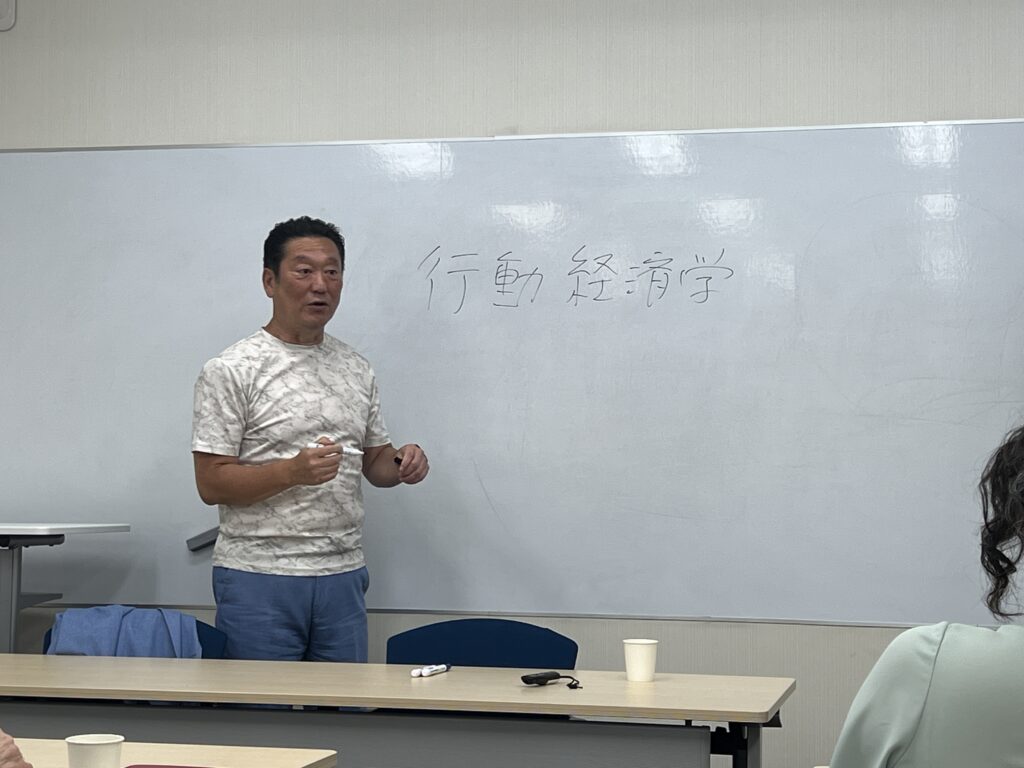 行動経済学